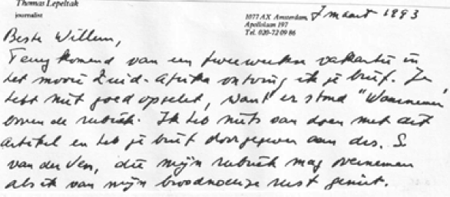 Thomas Lepeltak
journalist
1077 AX Amsterdam, 7 maart 1993
Apollolaan 197
Tel. 020-72 09 86
Beste Willem,
Terug komend van een twee weken vakantie in
het mooie Zuid-Afrika ontving ik je brief. Je
hebt niet goed opgelet, want er stond "Waarnemer"
boven de rubriek. Ik heb niets van doen met dit
artikel en heb je brief doorgegeven aan drs. S.
van der Ven, die mijn rubriek mag overnemen
als ik van mijn broodnodige rust geniet.